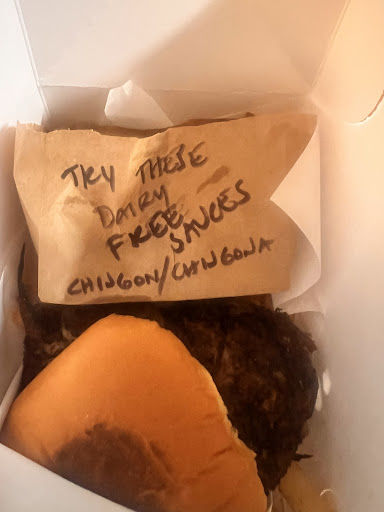 TRY THESE
DAIRY
FREE
SAUCES
CHINGON/CHINGONA